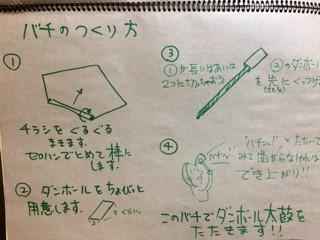 バチのつくり方
①
チラシをぐるぐる
まきます。
セロハンでとめて棒に
します。
② ダンボールをちょびっと
用意します。
③
①が長いばあいは
2つに切っちゃおう
②のダンボール
を先に
④
バチッ!!
できあがり!!
このバチでダンボール太鼓を
たたきます!!